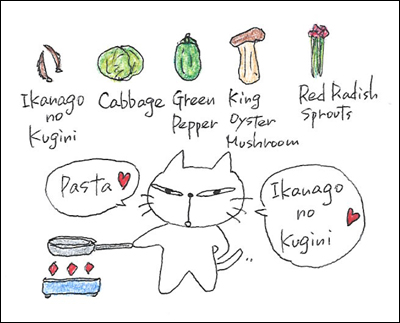 Ikanago
no
Kugini
Cabbage
Green
Pepper
King
Oyster
Mushroom
Red Radish
Sprouts
Pasta
Ikanago
no
Kugini